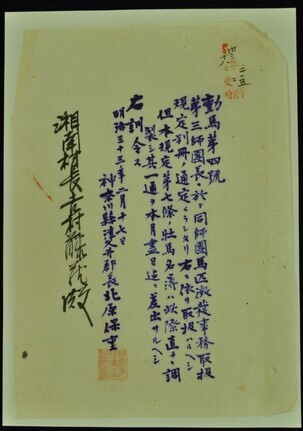 動馬第四號
第三師團長ニ於テ同師團馬匹徴發事務取扱
規定別冊ノ通定メラレタリ右ニ依リ取扱ハルヘシ
但本規定第七條ノ壯馬名簿ハ此際直チニ調
製シ其一通ヲ本月盡日迄ニ差出サルヘシ
右訓令ス
明治三十三年二月十七日
神奈川縣津久井郡長北原保重
湘南村長殿